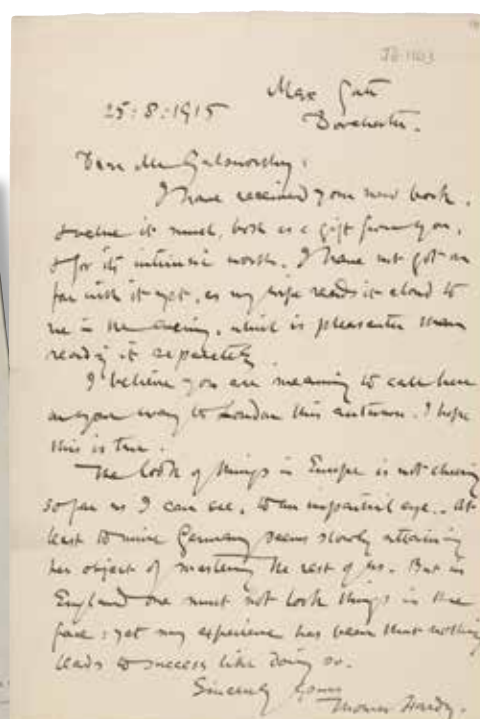 Max Gate
25:8:1915 Dorchester.
Dear Mr Galsworthy:
I have received your new book,
& value it much, both as a gift from you,
& for its intrinsic worth. I have not got on
far with it yet, as my wife reads it aloud to
me in the evening, which is pleasanter than
reading it separately.
I believe you are meaning to call here
on your way to London this autumn. I hope
this is true.
The look of things in Europe is not cheering
so far as I can see, to an impartial eye. At
least to mine Germany seems slowly attaining
her object of mastering the rest of us. But in
England one must not look things in the
face: yet my experience has been that nothing
leads to success like doing so.
Sincerely yours
Thomas Hardy.